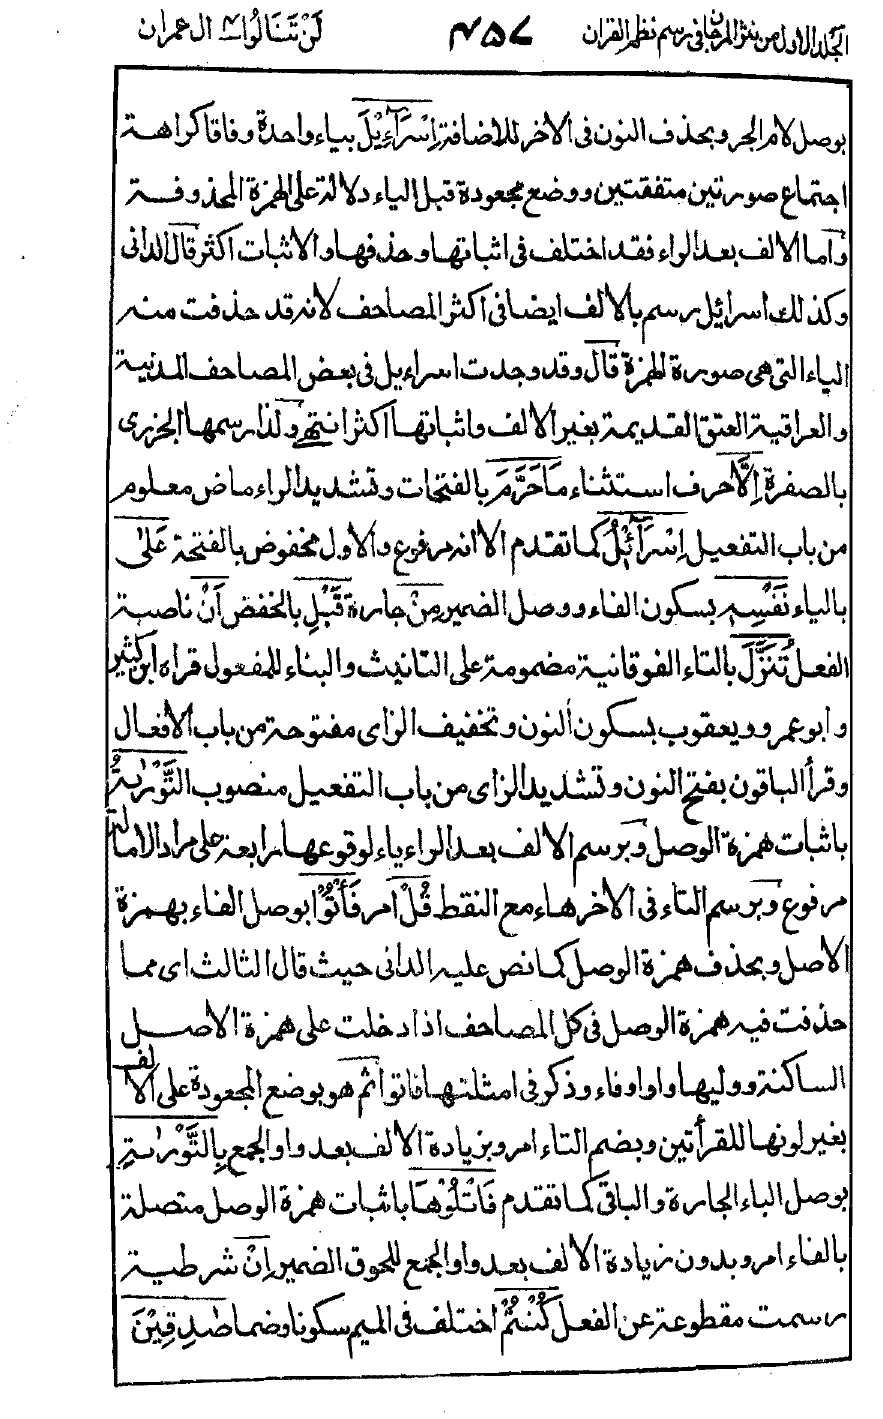 الجلد الاول من نثر المرجان في رسم نظم القران ۴۵۷ لَنْ تَنَالُوا۴ ال عمران
بوصل لام الجر وبحذف النون فى الاخر للاضافة اِسْرَآءِيْلَ بياء واحدة وفاقا كراهة
اجتماع صورتين متفقتين ووضع مجعودة قبل الياء دلالة على الهمزة المحذوفة
وأما الالف بعد الراء فقد اختلف فى اثباتها وحذفها والاثبات اكثر قال الدانى
وكذلك اسرائيل رسم بالالف ايضا فى اكثر المصاحف لانه قد حذفت منه
الياء التى هى صورة الهمزة قال وقد وجدت اسراءيل فى بعض المصاحف المدنية
والعراقية العتق القديمة بغير الالف واثباتها اكثر انتهى ولذا رسمها الجزرى
بالصفرة اِلَّا حرف استثناء مَا حَرَّمَ بالفتحات وتشديد الراء ماض معلوم
من باب التفعيل اِسْرَآئِيْلُ كما تقدم الا انه مرفوع والاول مخفوض بالفتحة عَلٰى
بالياء نَفْسِهٖ بسكون الفاء ووصل الضمير مِنْ جارة قَبْلِ بالخفض اَنْ ناصبة
الفعل تُنَزَّلَ بالتاء الفوقانية مضمومة على التانيث والبناء للمفعول قراه ابن كثير
وابو عمرو ويعقوب بسكون النون وتخفيف الزاى مفتوحة من باب الافعال
وقرأ الباقون بفتح النون وتشديد الزاى من باب التفعيل منصوب التَّوْرٰىةُ
باثبات همزة الوصل وبرسم الالف بعد الراء ياء لوقوعها رابعة على مراد الامالة
مرفوع وبرسم التاء فى الاخر هاء مع النقط قُلْ امر فَأْتُوْا بوصل الفاء بهمزة
الاصل وبحذف همزة الوصل كما نص عليه الدانى حيث قال الثالث اى مما
حذفت فيه همزة الوصل فى كل المصاحف اذا دخلت على همزة الاصل
الساكنة ووليها واو او فاء وذكر فى امثلتها فاتوا ثم هو بوضع المجعودة على الالف
بغير لونها للقرأتين وبضم التاء امر وبزيادة الالف بعد واو الجمع بِالتَّوْرٰىةِ
بوصل الباء الجارة والباقى كما تقدم فَاتْلُوْهَا باثبات همزة الوصل متصلة
بالفاء امر وبدون زيادة الالف بعد واو الجمع للحوق الضمير اِنْ شرطية
رسمت مقطوعة عن الفعل كُنْتُمْ اختلف فى الميم سكونا وضما صٰدِقِيْنَ